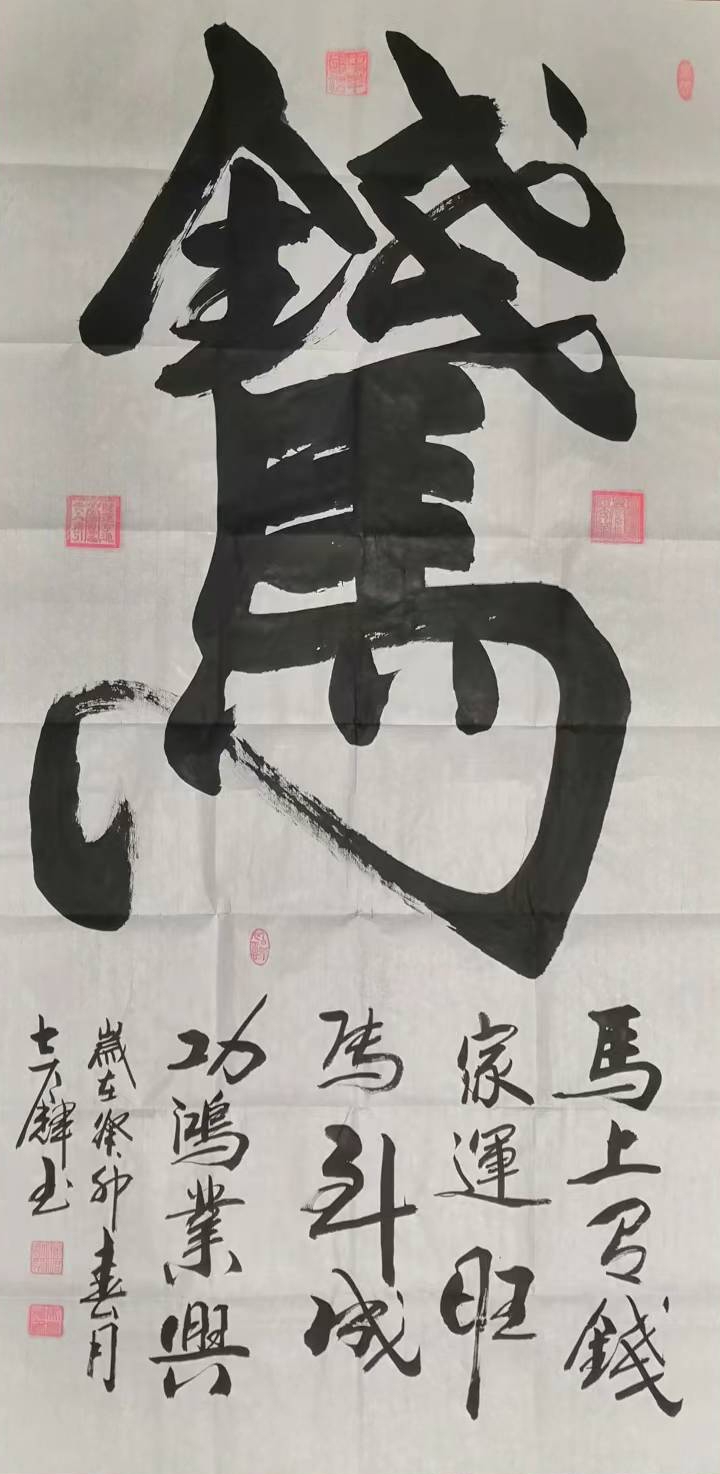 錢馬
馬上有錢
家運旺
馬到成
功鴻業興
歲在癸卯春月
書